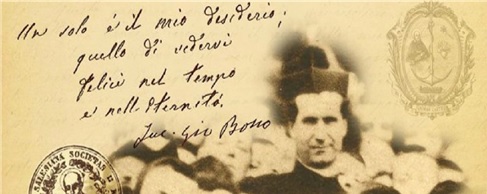 Un solo è il mio desiderio;
quello di vedervi
felici nel tempo
e nell'eternità.
Sac. Gio Bosco
SOCIETAS